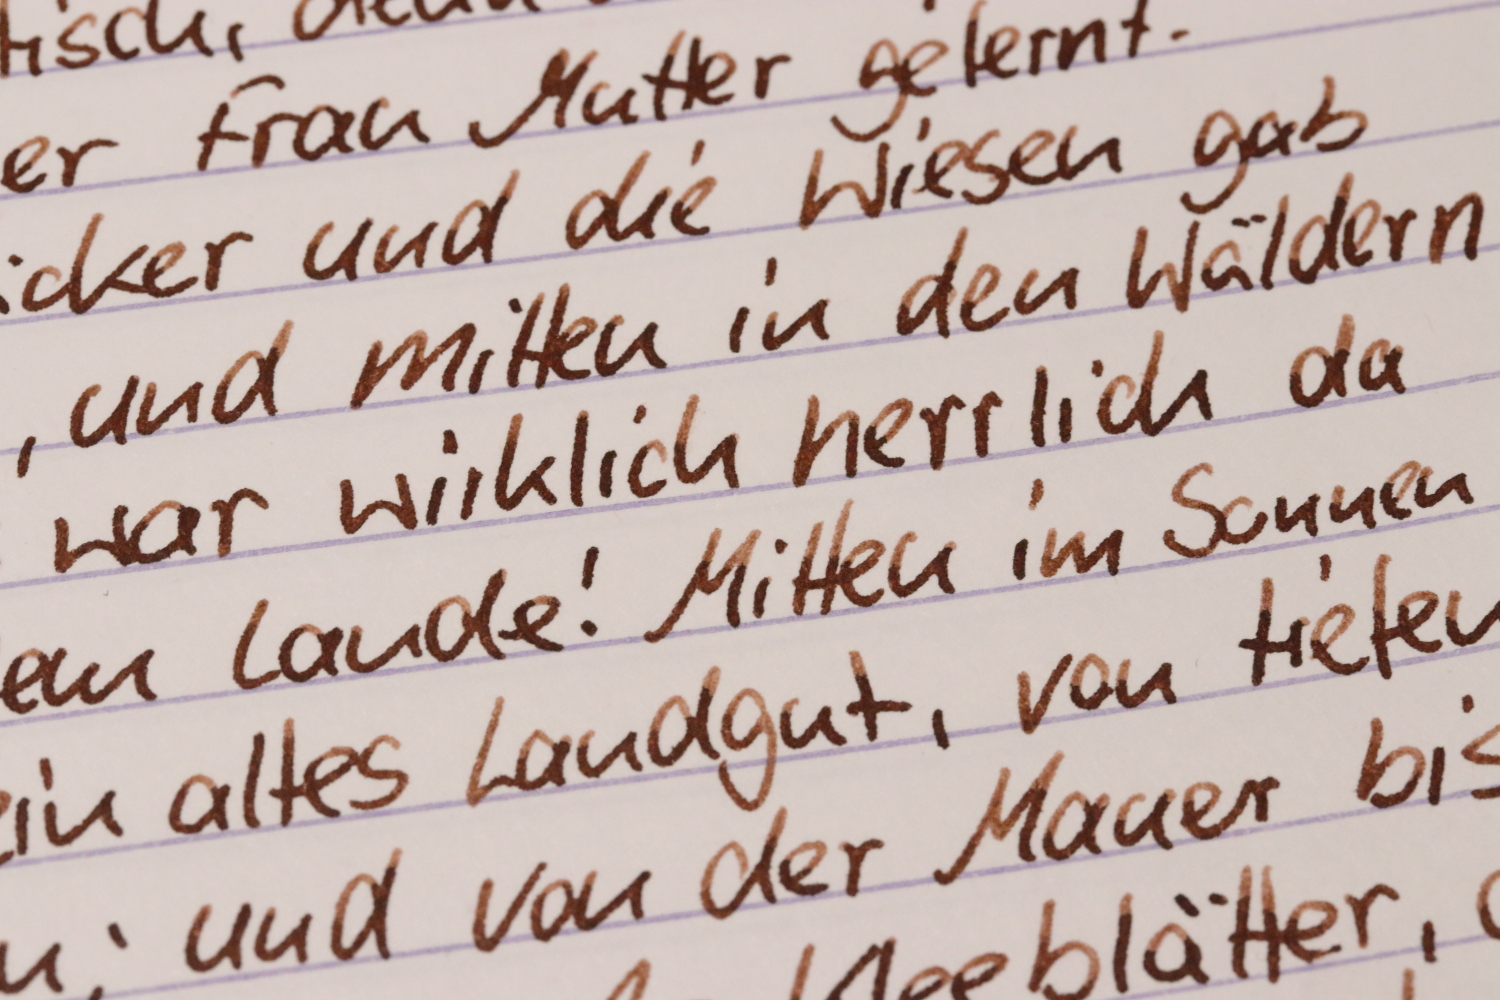 tisch, denn
er Frau Mutter gelernt.
cker und die Wiesen gab
, und mitten in den Wäldern
war wirklich herrlich da
em Lande! Mitten im Sonnen
ein altes Landgut, von tiefen
n; und von der Mauer bis
Kleeblätter,